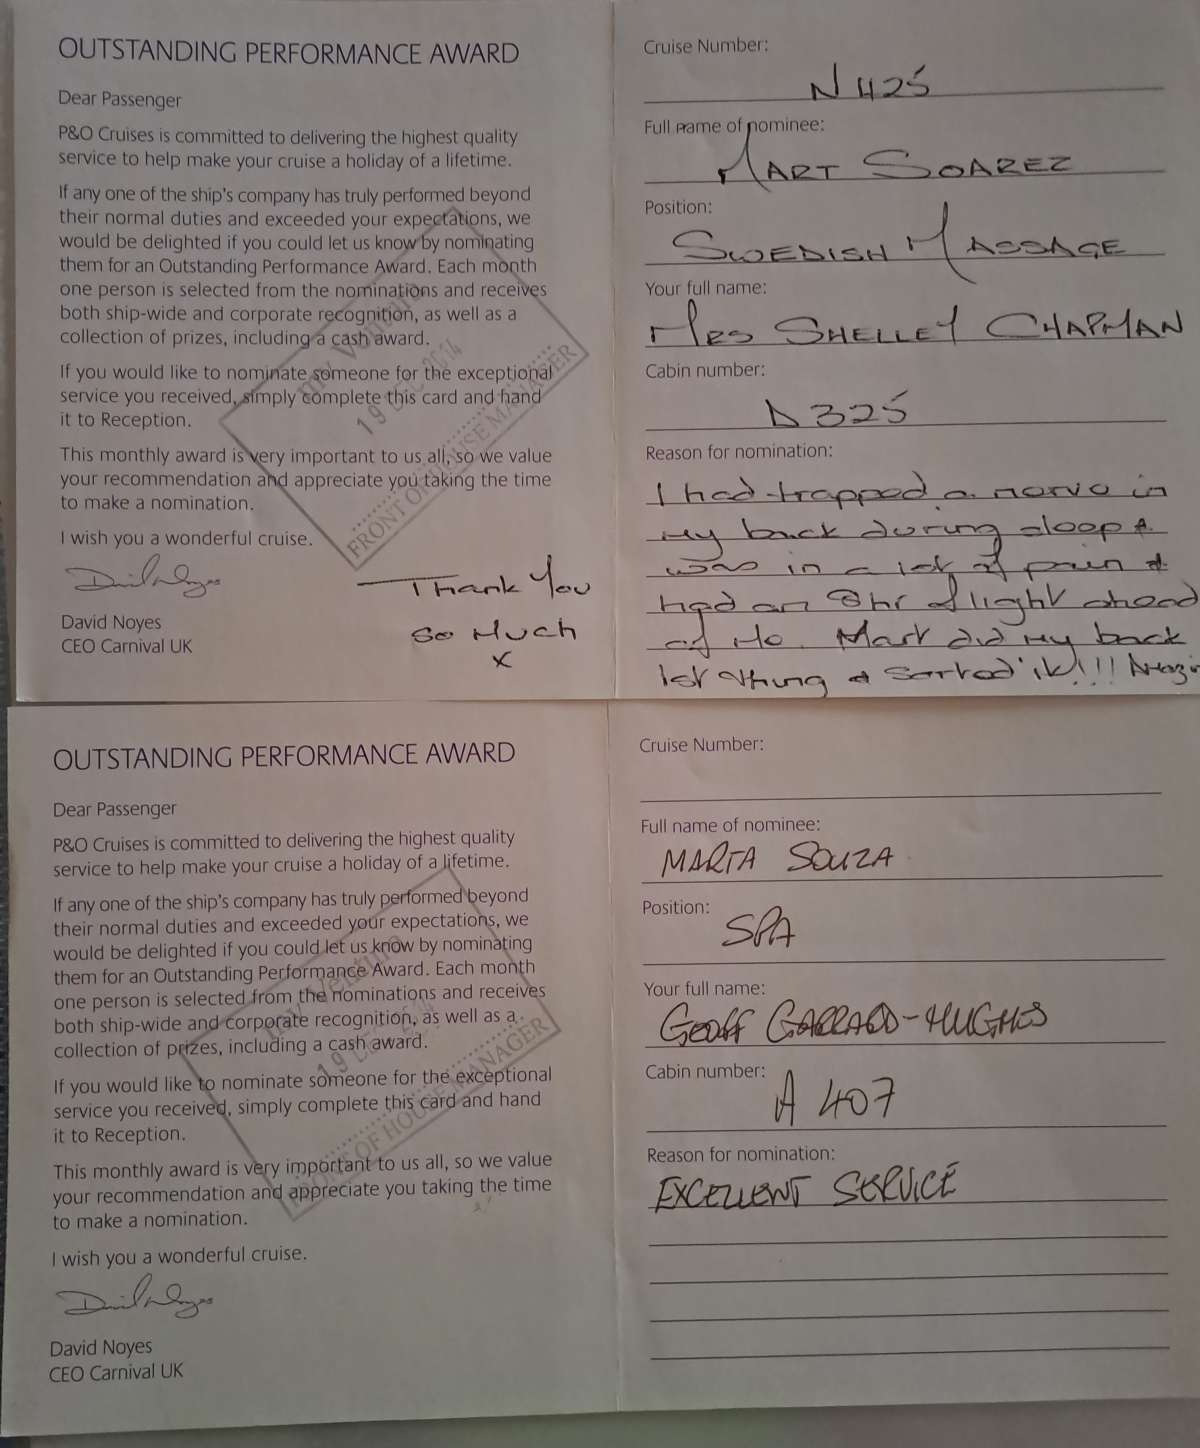 OUTSTANDING PERFORMANCE AWARD
Dear Passenger
P&O Cruises is committed to delivering the highest quality
service to help make your cruise a holiday of a lifetime.
If any one of the ship's company has truly performed beyond
their normal duties and exceeded your expectations, we
would be delighted if you could let us know by nominating
them for an Outstanding Performance Award. Each month
one person is selected from the nominations and receives
both ship-wide and corporate recognition, as well as a
collection of prizes, including a cash award.
If you would like to nominate someone for the exceptional
service you received, simply complete this card and hand
it to Reception.
This monthly award is very important to us all, so we value
your recommendation and appreciate you taking the time
to make a nomination.
I wish you a wonderful cruise.
David Noyes
CEO Carnival UK
mv Ventura
19 DEC 2014
FRONT OF HOUSE MANAGER
Thank You
So Much
x
Cruise Number:
N425
Full name of nominee:
MART SOAREZ
Position:
SWEDISH MASSAGE
Your full name:
MRS SHELLEY CHAPMAN
Cabin number:
D325
Reason for nomination:
I had trapped a nerve in
my back during sleep &
was in a lot of pain &
had an 8hr flight ahead
of Me. Mart did my back
1st thing & sorted it!!!
OUTSTANDING PERFORMANCE AWARD
Dear Passenger
P&O Cruises is committed to delivering the highest quality
service to help make your cruise a holiday of a lifetime.
If any one of the ship's company has truly performed beyond
their normal duties and exceeded your expectations, we
would be delighted if you could let us know by nominating
them for an Outstanding Performance Award. Each month
one person is selected from the nominations and receives
both ship-wide and corporate recognition, as well as a
collection of prizes, including a cash award.
If you would like to nominate someone for the exceptional
service you received, simply complete this card and hand
it to Reception.
This monthly award is very important to us all, so we value
your recommendation and appreciate you taking the time
to make a nomination.
I wish you a wonderful cruise.
David Noyes
CEO Carnival UK
mv Ventura
19 DEC 2014
FRONT OF HOUSE MANAGER
Cruise Number:
Full name of nominee:
MARTA SOUZA
Position:
SPA
Your full name:
GEOFF GARRARD-HUGHES
Cabin number:
A 407
Reason for nomination:
EXCELLENT SERVICE